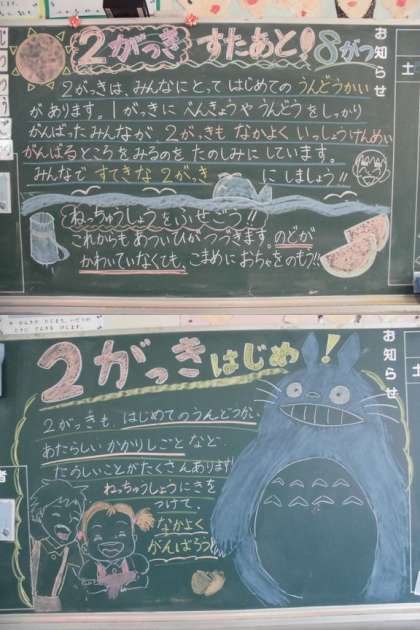 2がっき すたあと! 8がつ
お知らせ
土
2がっきは、みんなにとって はじめての うんどうかい
があります。1がっきに べんきょうや うんどうを しっかり
がんばった みんなが、2がっきも なかよく いっしょうけんめい
がんばるところを みるのを たのしみに しています。
みんなで すてきな 2がっき にしましょう!!
ねっちゅうしょうをふせごう!!
これからも あついひが つづきます。のどが
かわいていなくても、こまめに おちゃをのもう!!
2がっきはじめ!
お知らせ
土
2がっきも、はじめてのうんどうかい、
あたらしい かかりしごと など、
たのしいことがたくさんあります!
ねっちゅうしょうにきを
つけて、
なかよく
がんばろう!
者